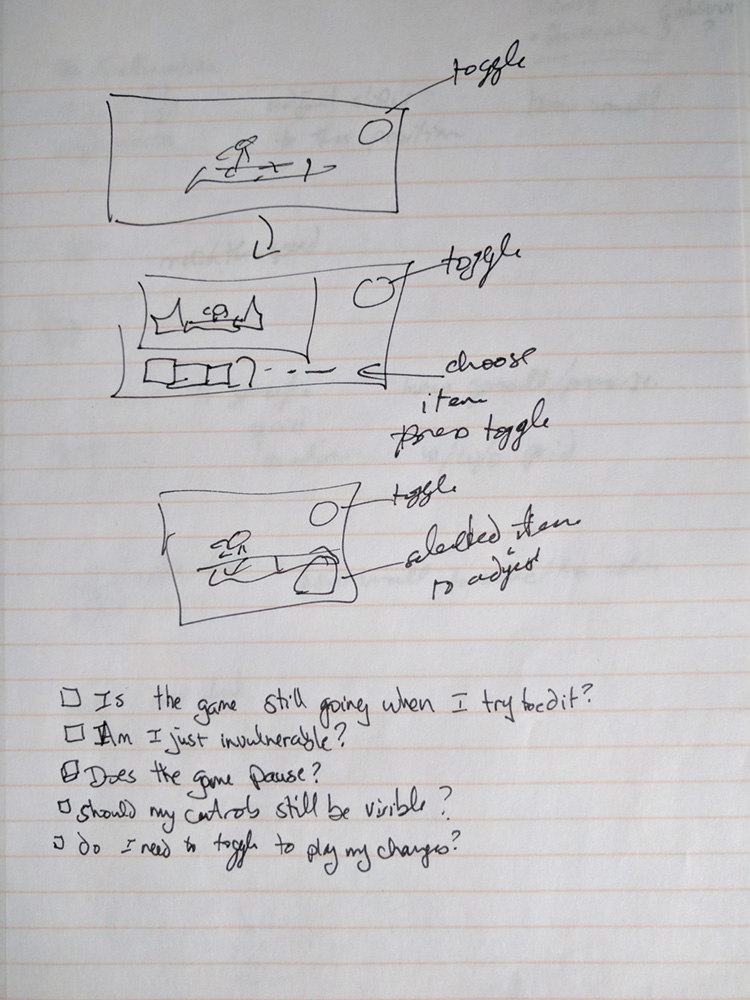 toggle
toggle
choose
item
press toggle
toggle
selected item
to adjust
Is the game still going when I try to edit?
Am I just invulnerable?
Does the game pause?
should my controls still be visible?
do I need to toggle to play my changes?